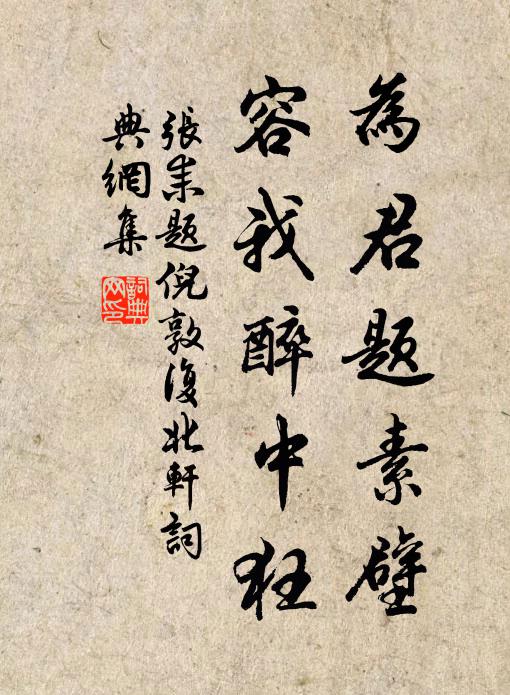 為君題素壁
容我醉中狂
張耒題倪敦復北軒詞
典網集
詞典網印